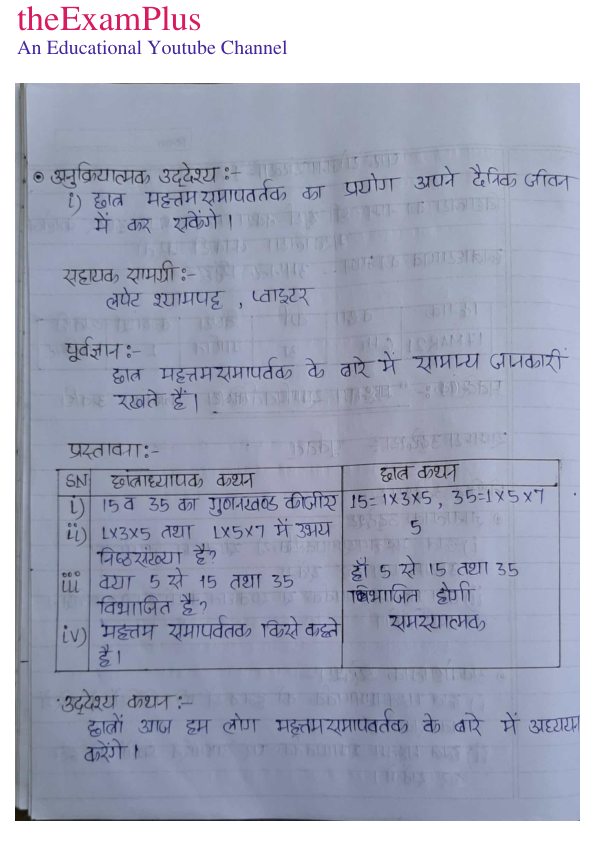 theExamPlus
An Educational Youtube Channel
⦿ अनुक्रियात्मक उद्देश्य :-
i) छात्र महत्तम समापवर्तक का प्रयोग अपने दैनिक जीवन
में कर सकेंगे।
सहायक सामग्री :-
लपेट श्यामपट्ट , प्वाइटर
पूर्वज्ञान :-
छात्र महत्तमसमापर्वतक के बारे में सामान्य जानकारी
रखते हैं।
प्रस्तावना :-
SN छात्राध्यापक कथन छात्र कथन
i) 15 व 35 का गुणनखण्ड कीजीए 15=1×3×5, 35=1×5×7
ii) 1×3×5 तथा 1×5×7 में उभय 5
निष्ठसंख्या है?
iii क्या 5 से 15 तथा 35 हाँ 5 से 15 तथा 35
विभाजित है? विभाजित होगी
iv) महत्तम समापर्वतक किसे कहते समस्यात्मक
है।
उद्देश्य कथन :-
छात्रों आज हम लोग महत्तमसमापवर्तक के बारे में अध्ययन
करेंगे।